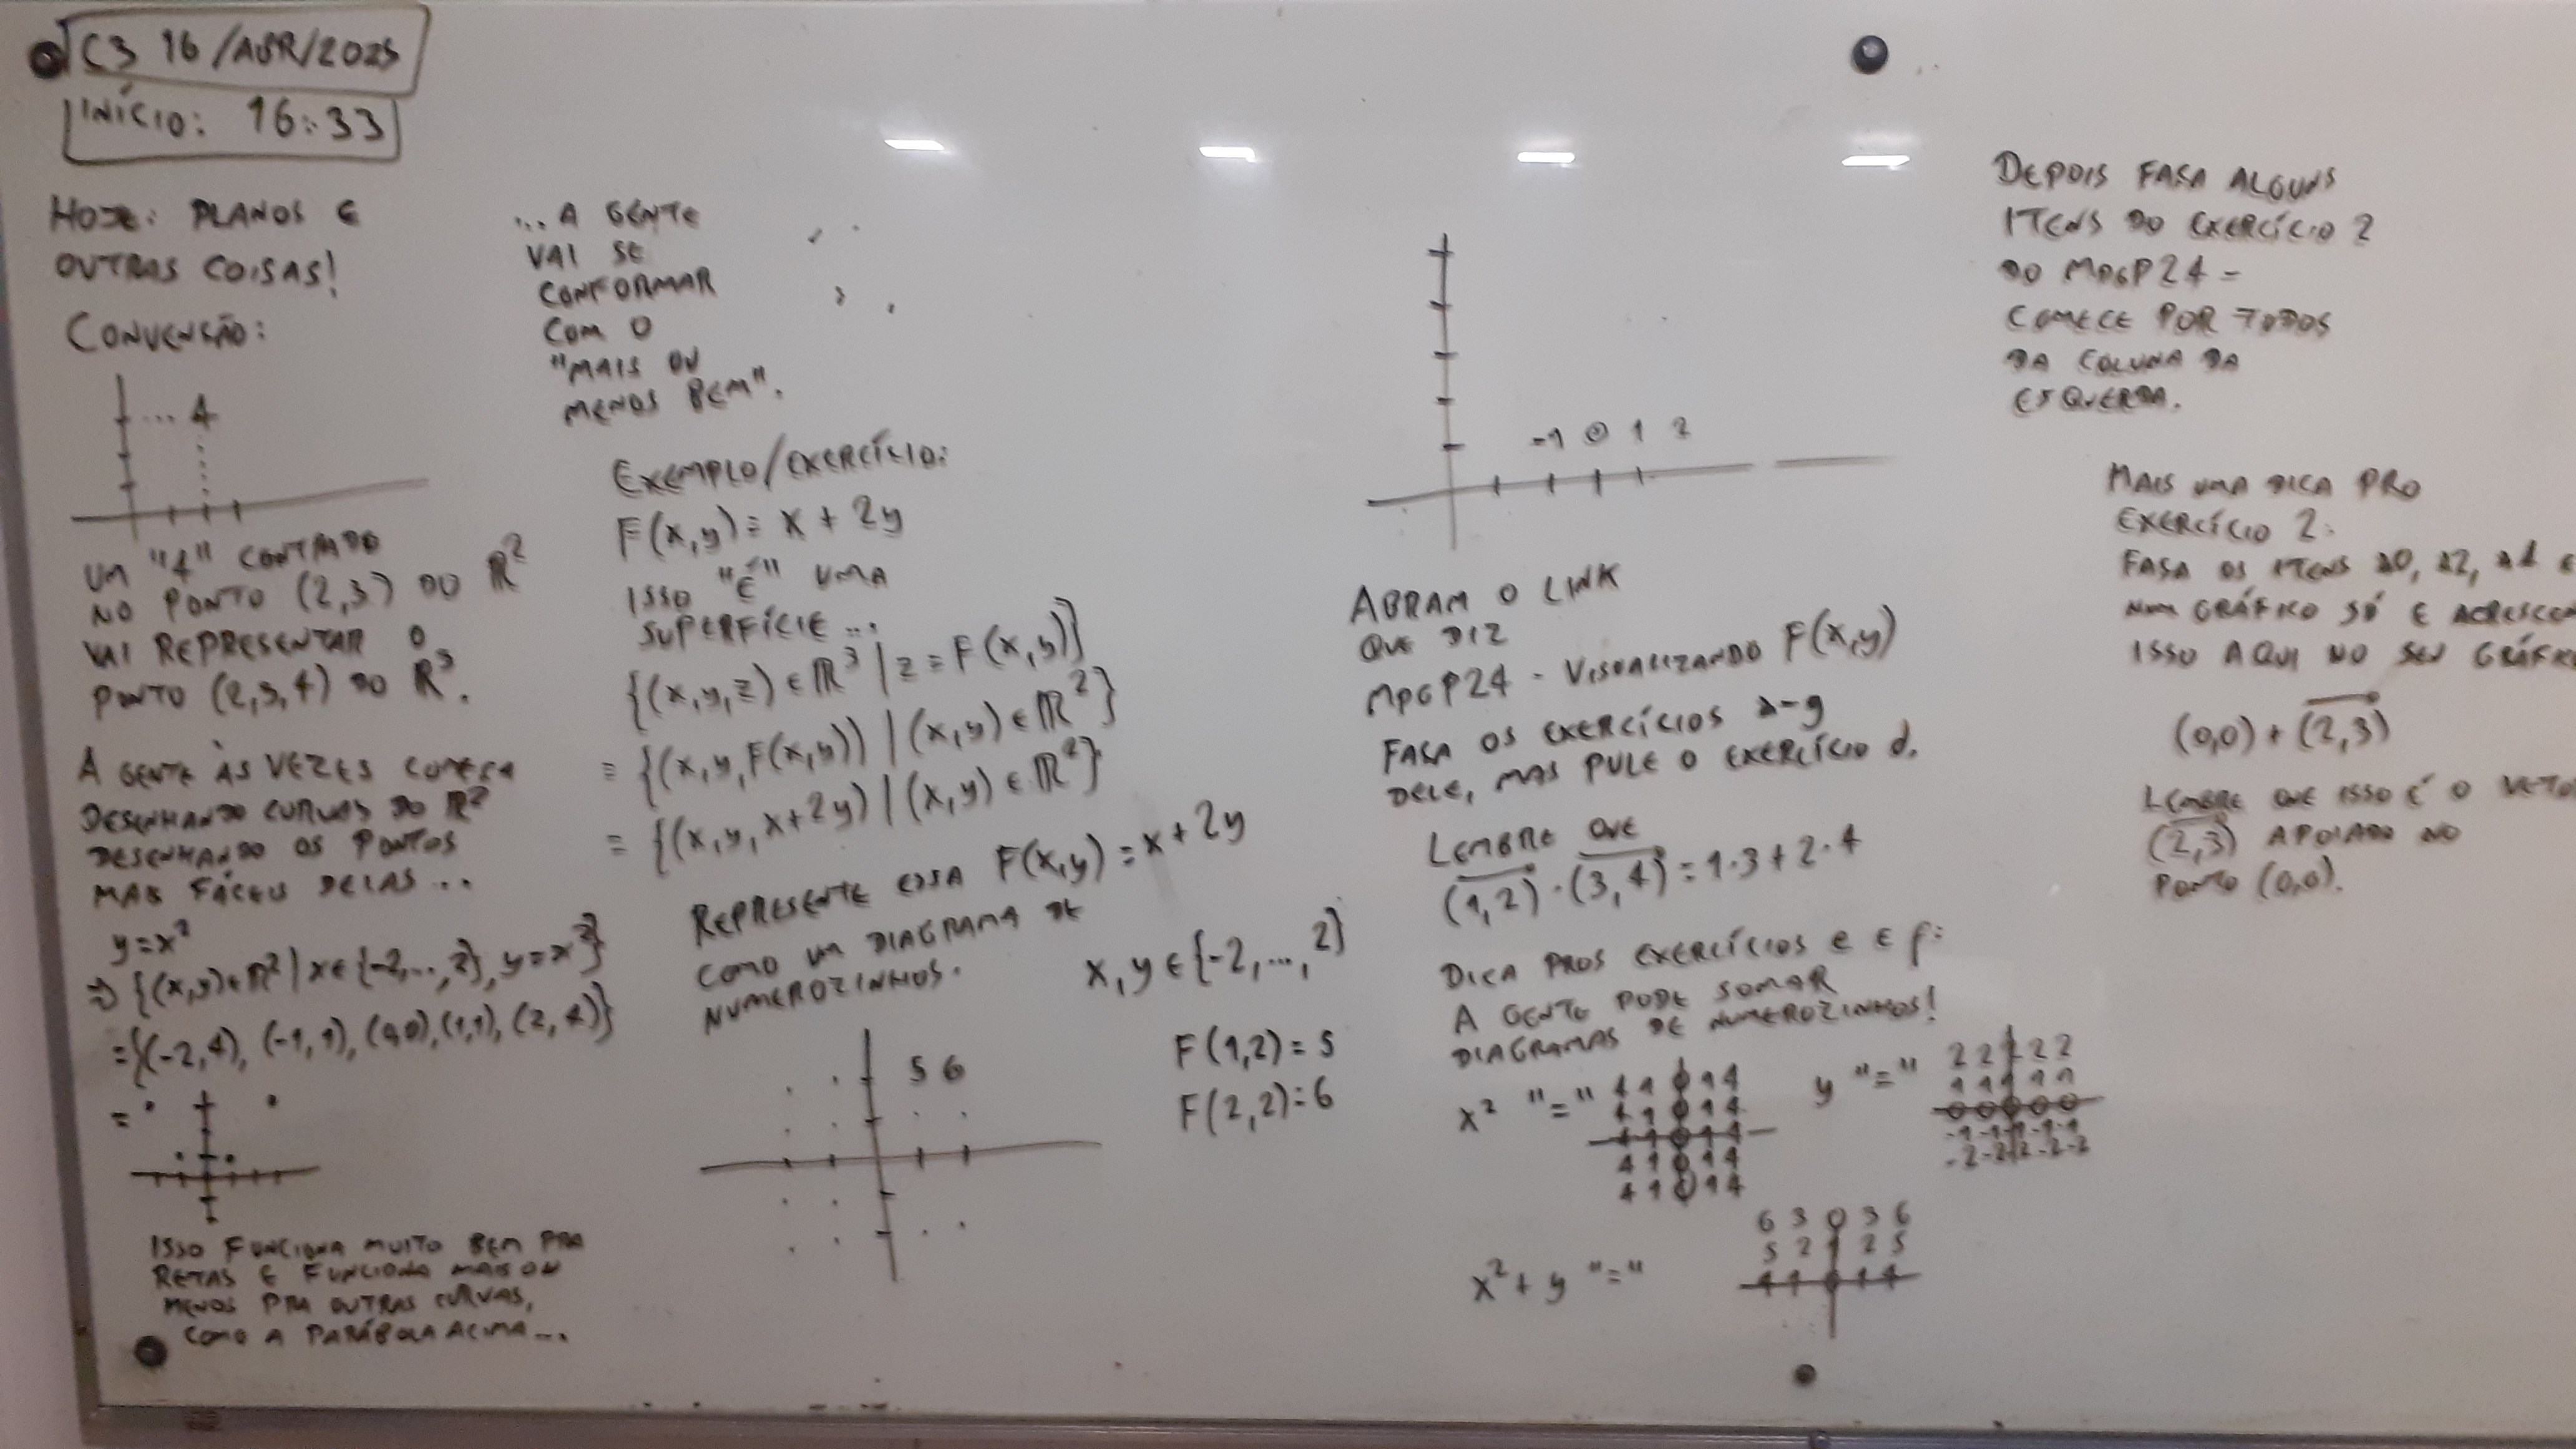 C3 16/ABR/2025
INÍCIO: 16:33
HOJE: PLANOS E
OUTRAS COISAS!
CONVENÇÃO:
... 4
UM "4" CENTRADO
NO PONTO (2,3) DO ℝ²
VAI REPRESENTAR O
PONTO (2,3,4) DO ℝ³.
A GENTE ÀS VEZES COMEÇA
DESENHANDO CURVAS DO ℝ²
DESENHANDO OS PONTOS
MAIS FÁCEIS DELAS...
y=x²
⇒ {(x,y)∈ℝ² | x∈{-2,...,2}, y=x²}
={(-2,4), (-1,1), (0,0), (1,1), (2,4)}
=
ISSO FUNCIONA MUITO BEM PRA
RETAS E FUNCIONA MAIS OU
MENOS PRA OUTRAS CURVAS,
COMO A PARÁBOLA ACIMA...
... A GENTE
VAI SE
CONFORMAR
COM O
"MAIS OU
MENOS BEM".
EXEMPLO/EXERCÍCIO:
F(x,y) = x + 2y
ISSO "É" UMA
SUPERFÍCIE...
{(x,y,z)∈ℝ³ | z = F(x,y)}
= {(x,y,F(x,y)) | (x,y)∈ℝ²}
= {(x,y,x+2y) | (x,y)∈ℝ²}
REPRESENTE ESSA F(x,y) = x + 2y
COMO UM DIAGRAMA DE
NUMEROZINHOS.
x,y∈{-2,...,2}
5 6
F(1,2) = 5
F(2,2) = 6
-1 0 1 2
ABRAM O LINK
QUE DIZ
MPGP24 - VISUALIZANDO F(x,y)
FAÇA OS EXERCÍCIOS a-g
DELE, MAS PULE O EXERCÍCIO d.
LEMBRE QUE
(1,2)·(3,4) = 1·3+2·4
DICA PROS EXERCÍCIOS e E f:
A GENTE PODE SOMAR
DIAGRAMAS DE NUMEROZINHOS!
x² "="
4 1 0 1 4
4 1 0 1 4
4 1 0 1 4
4 1 0 1 4
4 1 0 1 4
y "="
2 2 2 2 2
1 1 1 1 1
0 0 0 0 0
-1 -1 -1 -1 -1
-2 -2 -2 -2 -2
x² + y "="
6 3 0 3 6
5 2 1 2 5
4 1 0 1 4
DEPOIS FAÇA ALGUNS
ITENS DO EXERCÍCIO 2
DO MPGP24 -
COMECE POR TODOS
DA COLUNA DA
ESQUERDA.
MAIS UMA DICA PRO
EXERCÍCIO 2:
FAÇA OS ITENS a0, a2, a4 E
NUM GRÁFICO SÓ E ACRESCEN
ISSO AQUI NO SEU GRÁFIC
(0,0) + (2,3)
LEMBRE QUE ISSO É O VETO
(2,3) APOIADO NO
PONTO (0,0).